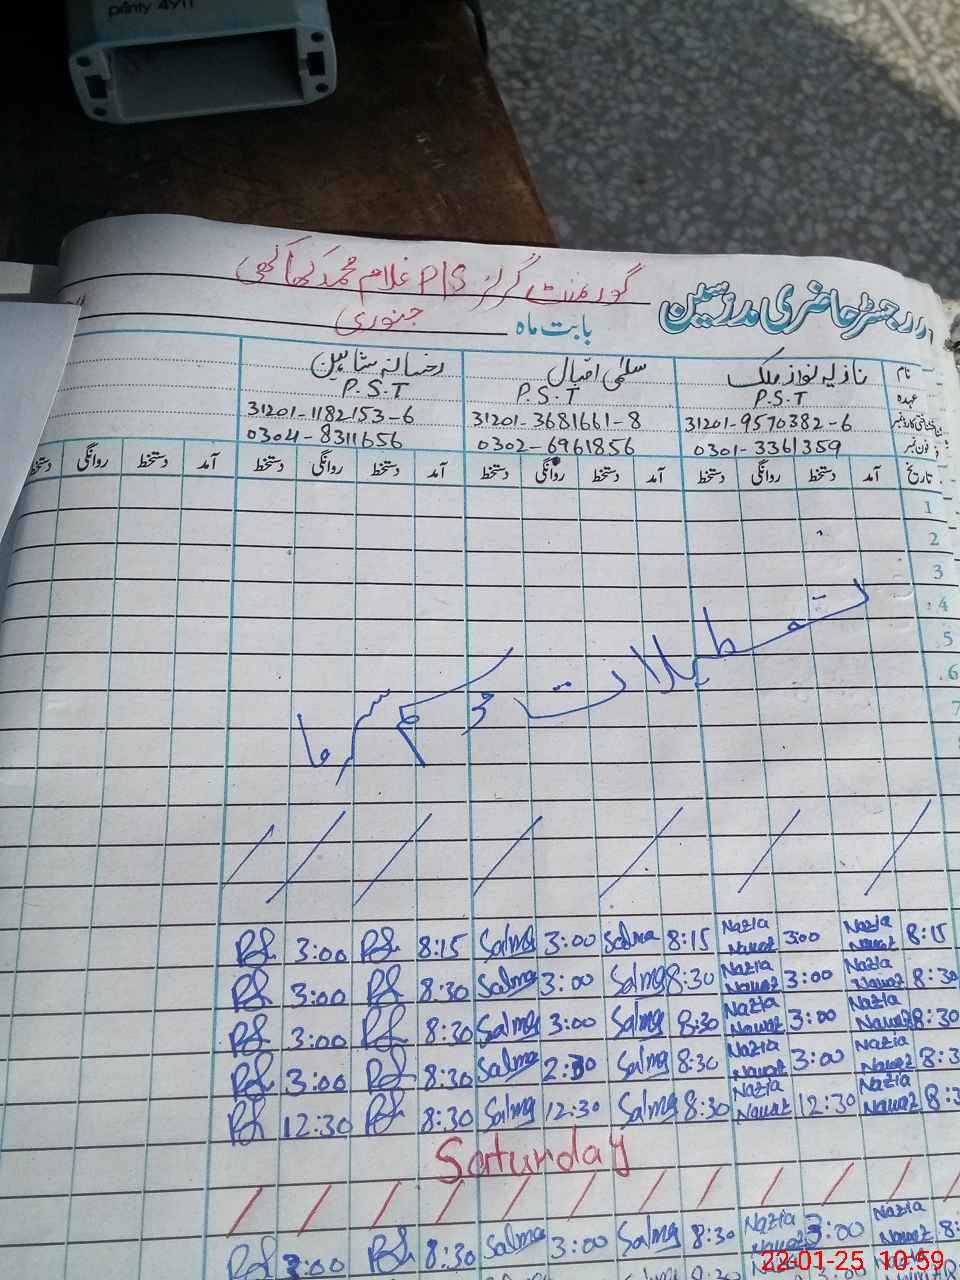 printy 4911
گورنمنٹ گرلز P/S غلام محمد
رجسٹر حاضری مدرسین بابت ماہ جنوری
نام نازلیہ نواز ملک سلمٰی اقبال رخسانہ شاہین
عہدہ P.S.T P.S.T P.S.T
31201-9570382-6 31201-3681661-8 31201-1182153-6
فون نمبر 0301-3361359 0302-6961856 0304-8311656
تاریخ آمد دستخط روانگی دستخط آمد دستخط روانگی دستخط آمد دستخط روانگی دستخط آمد دستخط روانگی دستخط
1
2
3
4
5
6
7
تعطیلات موسم سرما
8:15 Nazia Nawaz 3:00 Nazia Nawaz 8:15 Salma 3:00 Salma 8:15 3:00
8:30 Nazia Nawaz 3:00 Nazia Nawaz 8:30 Salma 3:00 Salma 8:30 3:00
8:30 Nazia Nawaz 3:00 Nazia Nawaz 8:30 Salma 3:00 Salma 8:30 3:00
8:3 Nazia Nawaz 3:00 Nazia Nawaz 8:30 Salma 2:30 Salma 8:30 3:00
8:3 Nazia Nawaz 12:30 Nazia Nawaz 8:30 Salma 12:30 Salma 8:30 12:30
Saturday
8: Nazia Nawaz 3:00 Nazia Nawaz 8:30 Salma 3:00 Salma 8:30 3:00
22-01-25 10:59